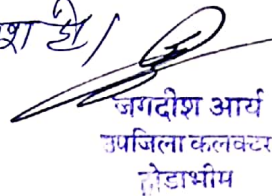 हो/
जगदीश आर्य
उपजिला कलक्टर
टोडाभीम